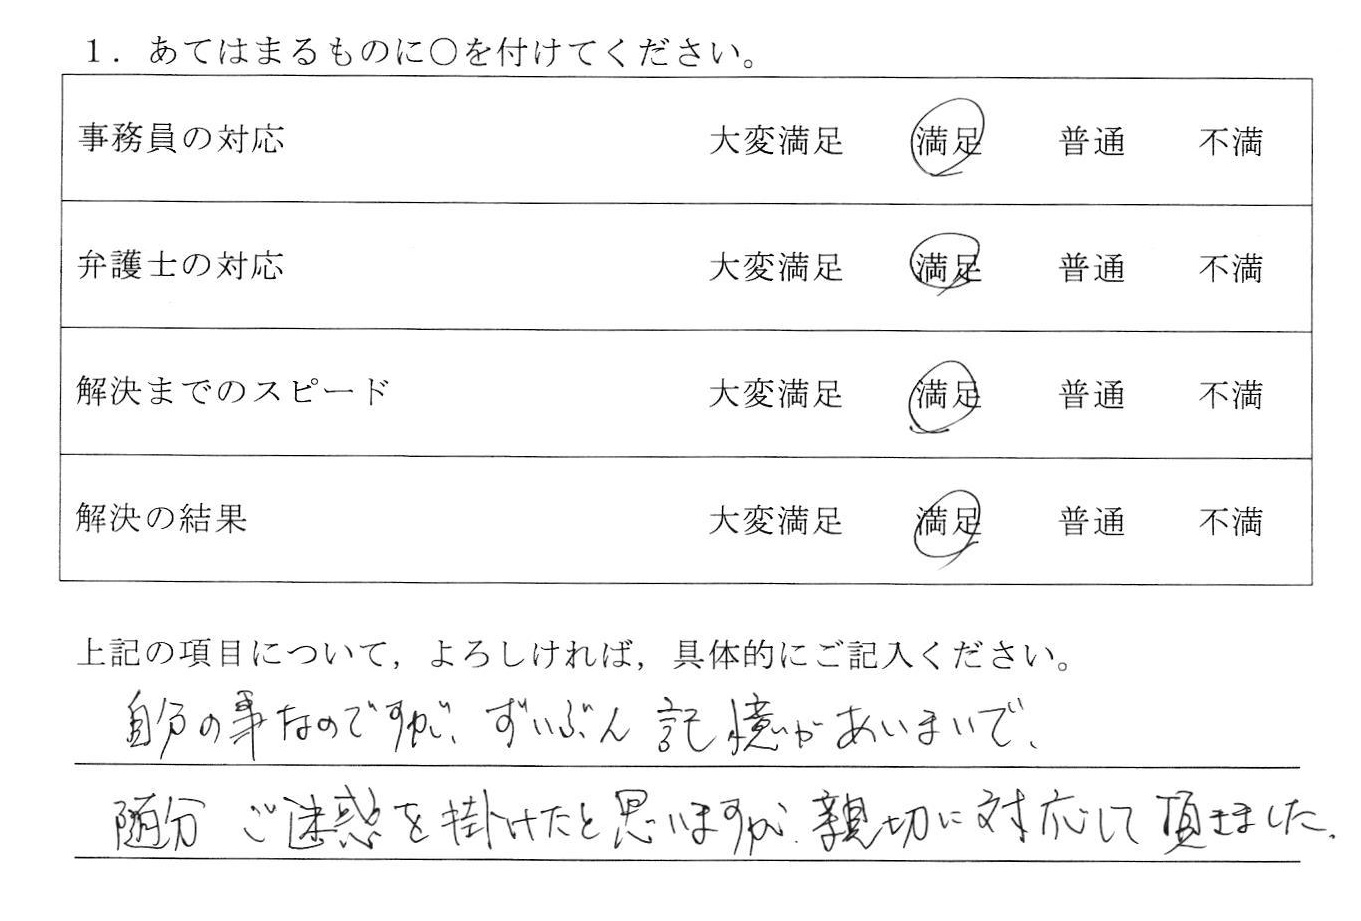 1．あてはまるものに○を付けてください。
事務員の対応 大変満足 満足 普通 不満
弁護士の対応 大変満足 満足 普通 不満
解決までのスピード 大変満足 満足 普通 不満
解決の結果 大変満足 満足 普通 不満
上記の項目について，よろしければ，具体的にご記入ください。
自分の事なのですが、ずいぶん記憶があいまいで、
随分ご迷惑を掛けたと思いますが、親切に対応して頂きました。